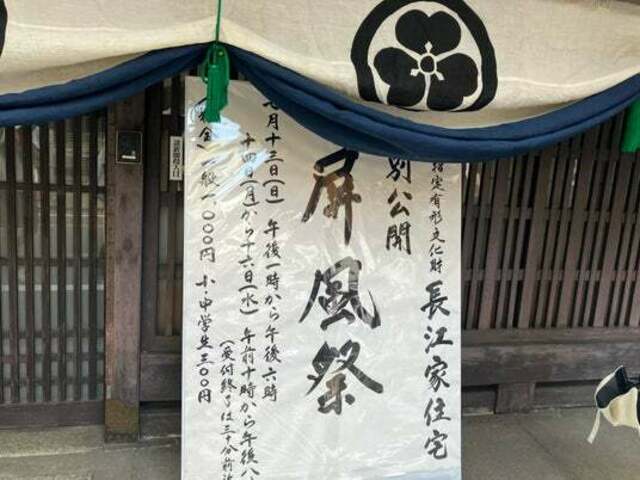 指定有形文化財 長江家住宅
別公開
屏風祭
七月十三日(日) 午後一時から午後六時
十四日(月)から十六日(水) 午前十時から午後八
(受付終了は三十分前
料金) 一般一、〇〇〇円 小・中学生三〇〇円